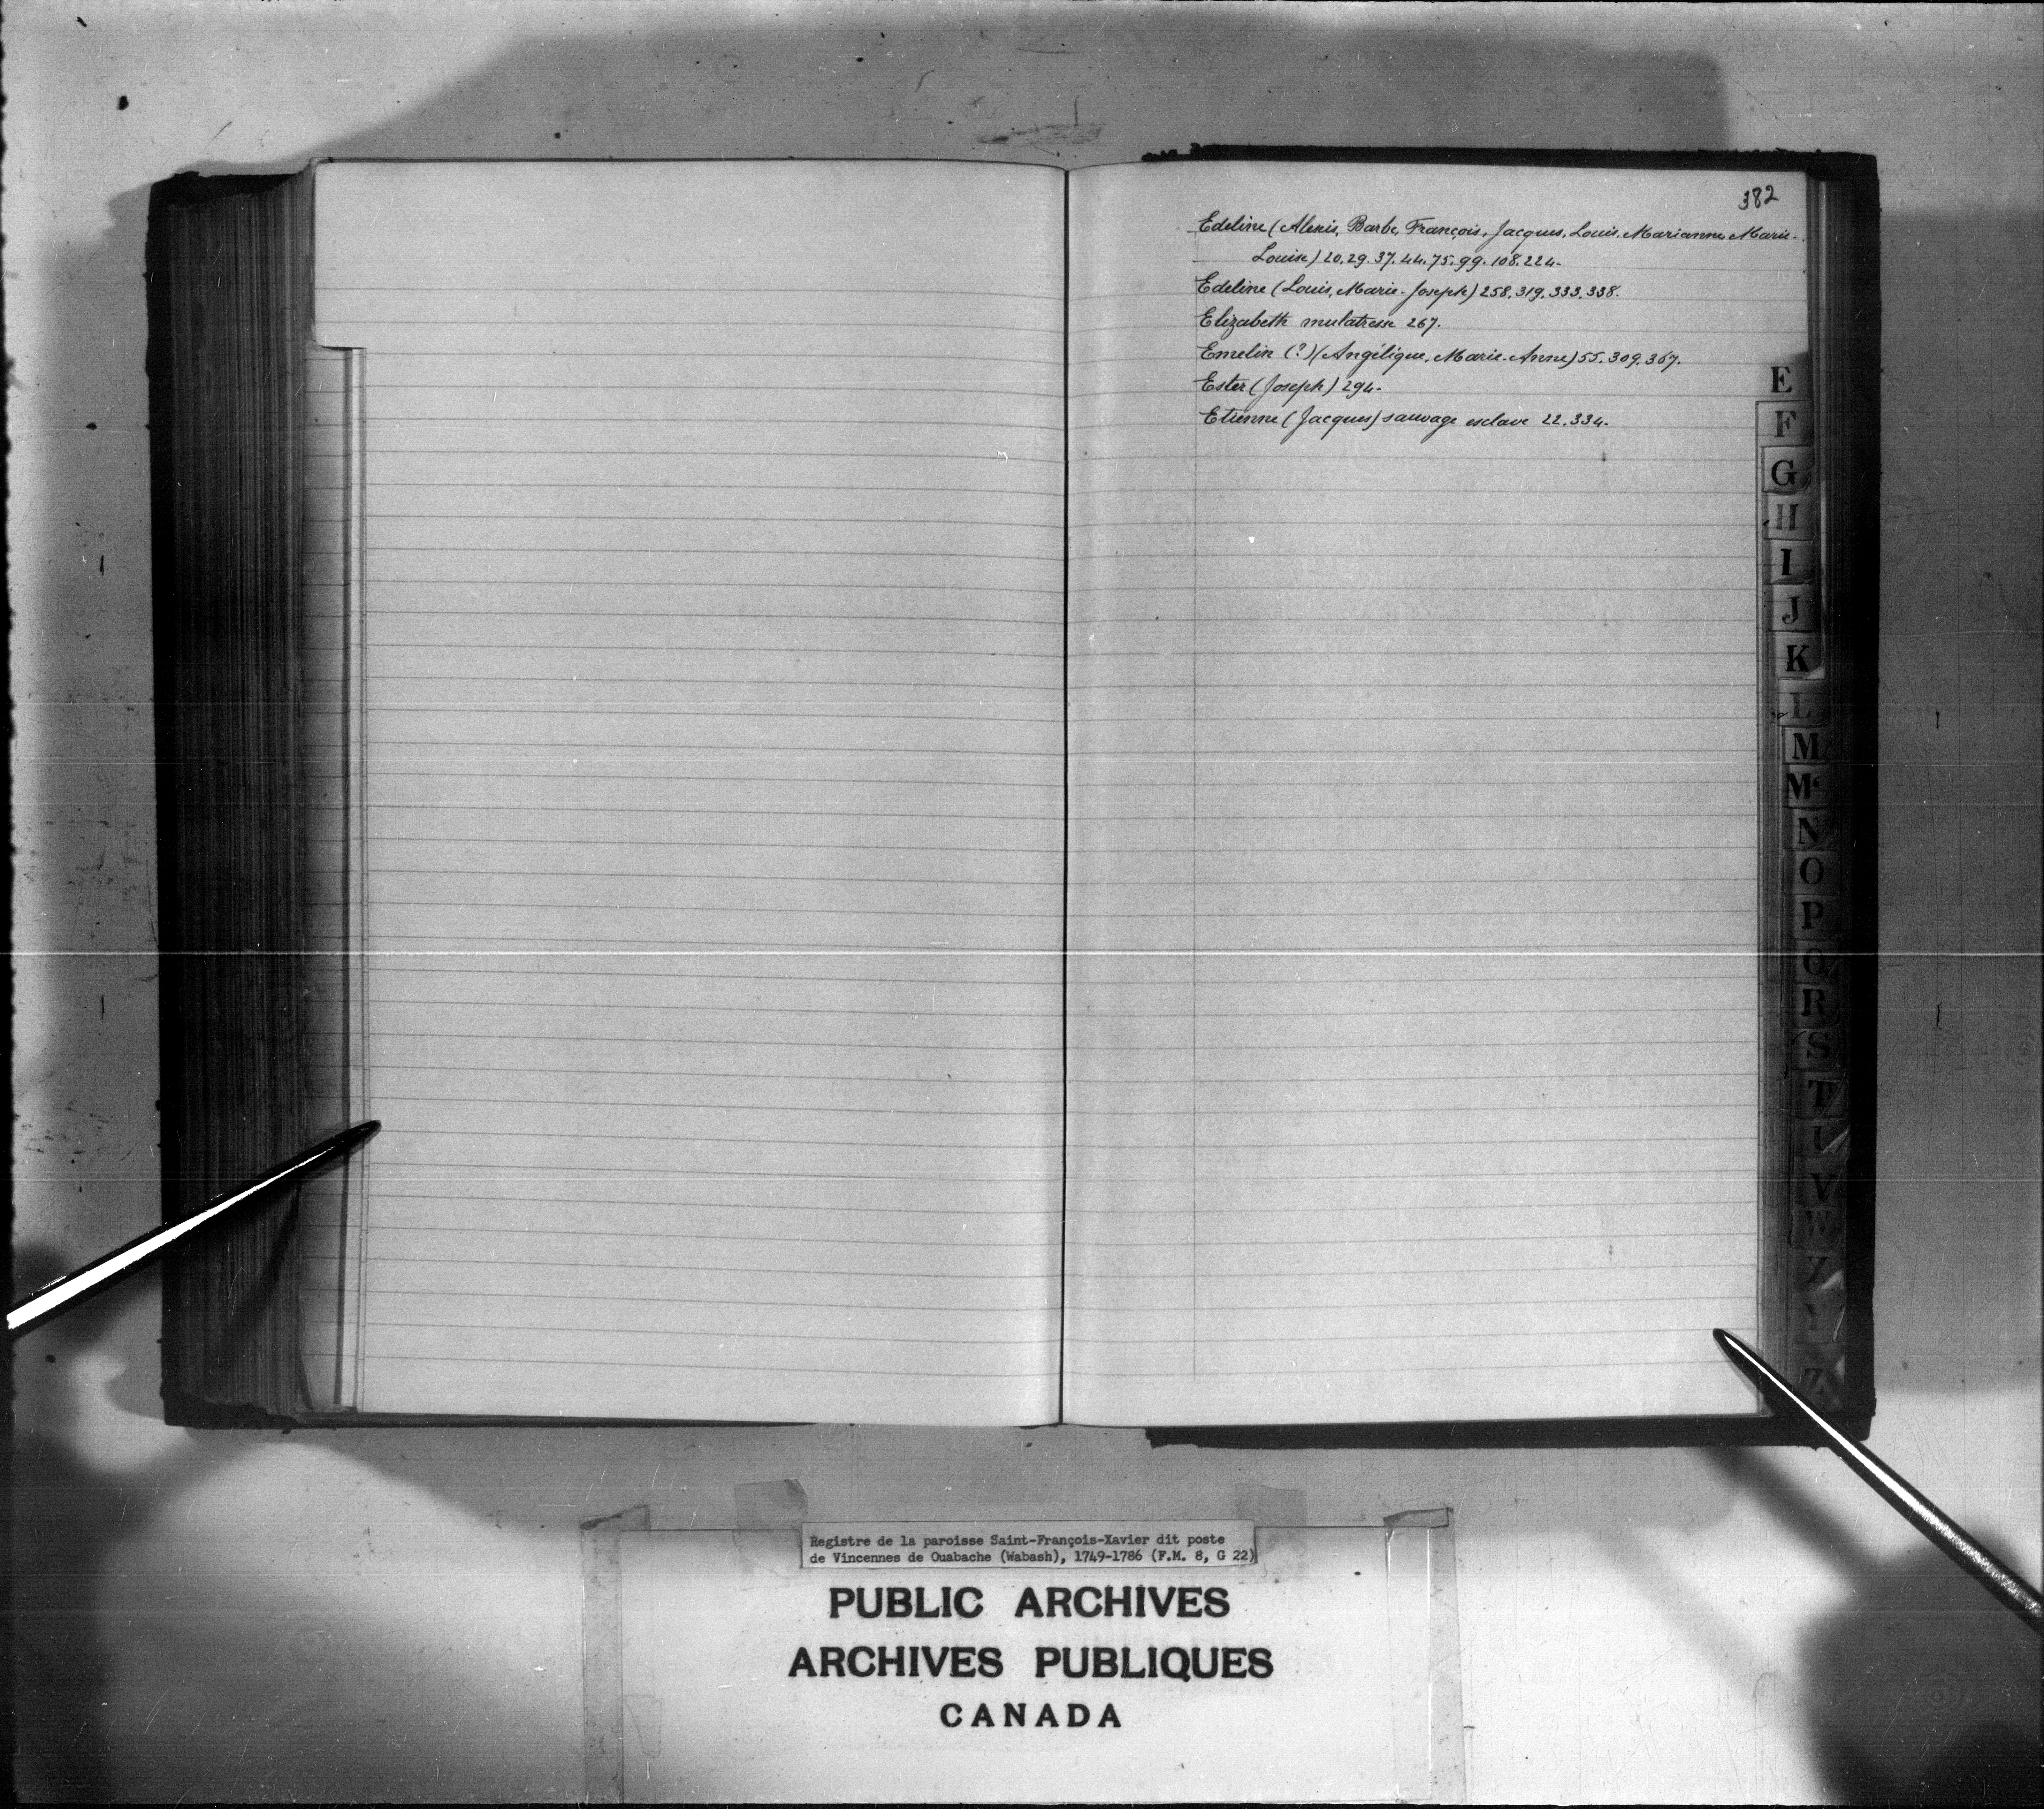 382
Edeline (Alexis, Barbe, François, Jacques, Louis, Marianne, Marie-
Louise) 20. 29. 37. 44. 75. 99. 108. 224.
Edeline (Louis, Marie-Joseph) 258. 319. 333. 338.
Elizabeth mulatresse 267.
Emelin (?) (Angélique, Marie-Anne) 55. 309. 367.
Ester (Joseph) 294.
Etienne (Jacques) sauvage esclave 22. 334.
E
F
G
H
I
J
K
L
M
Mc
N
O
P
Q
R
S
T
U
V
W
X
Y
Z
Registre de la paroisse Saint-François-Xavier dit poste
de Vincennes de Ouabache (Wabash), 1749-1786 (F.M. 8, G 22)
PUBLIC ARCHIVES
ARCHIVES PUBLIQUES
CANADA